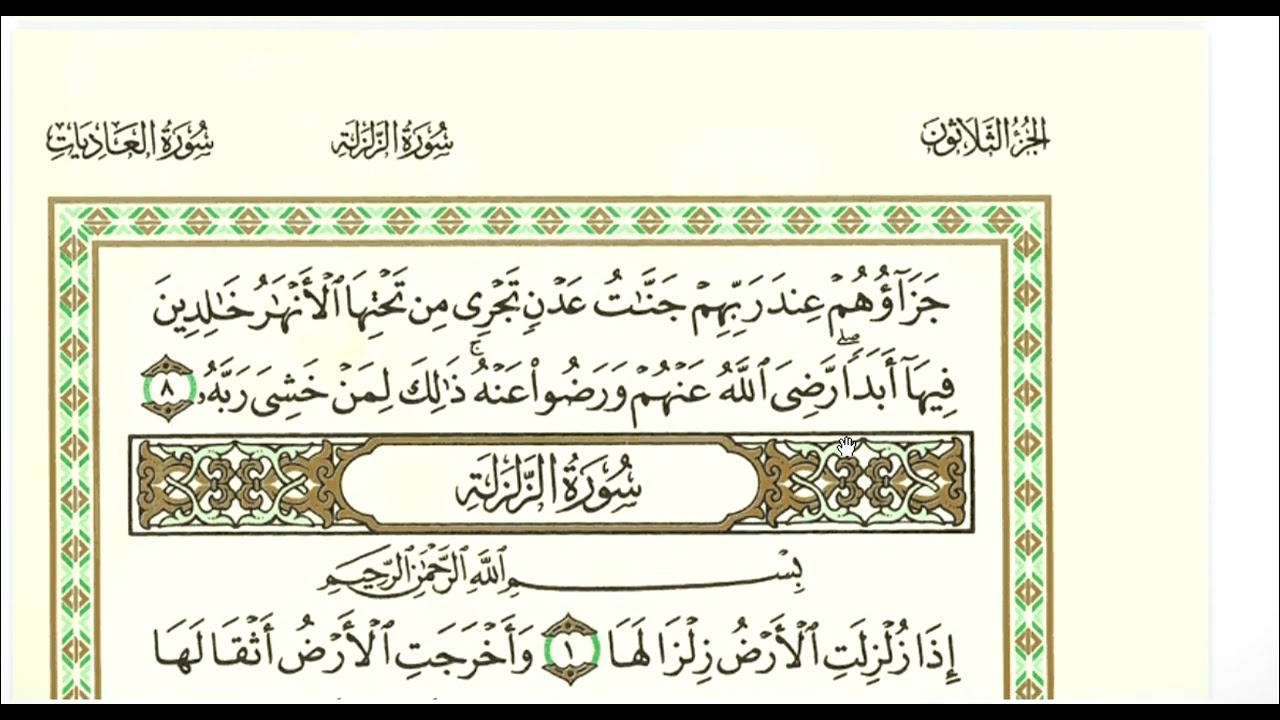 الجزء الثلاثون سورة الزلزلة سورة العاديات
جَزَآؤُهُمْ عِندَ رَبِّهِمْ جَنَّـٰتُ عَدْنٍ تَجْرِى مِن تَحْتِهَا ٱلْأَنْهَـٰرُ خَـٰلِدِينَ
فِيهَآ أَبَدًاۖ رَّضِىَ ٱللَّهُ عَنْهُمْ وَرَضُوا۟ عَنْهُۚ ذَٰلِكَ لِمَنْ خَشِىَ رَبَّهُۥ ٨
سُورَةُ الزَّلْزَلَةِ
بِسْمِ ٱللَّهِ ٱلرَّحْمَـٰنِ ٱلرَّحِيمِ
إِذَا زُلْزِلَتِ ٱلْأَرْضُ زِلْزَالَهَا ١ وَأَخْرَجَتِ ٱلْأَرْضُ أَثْقَالَهَا